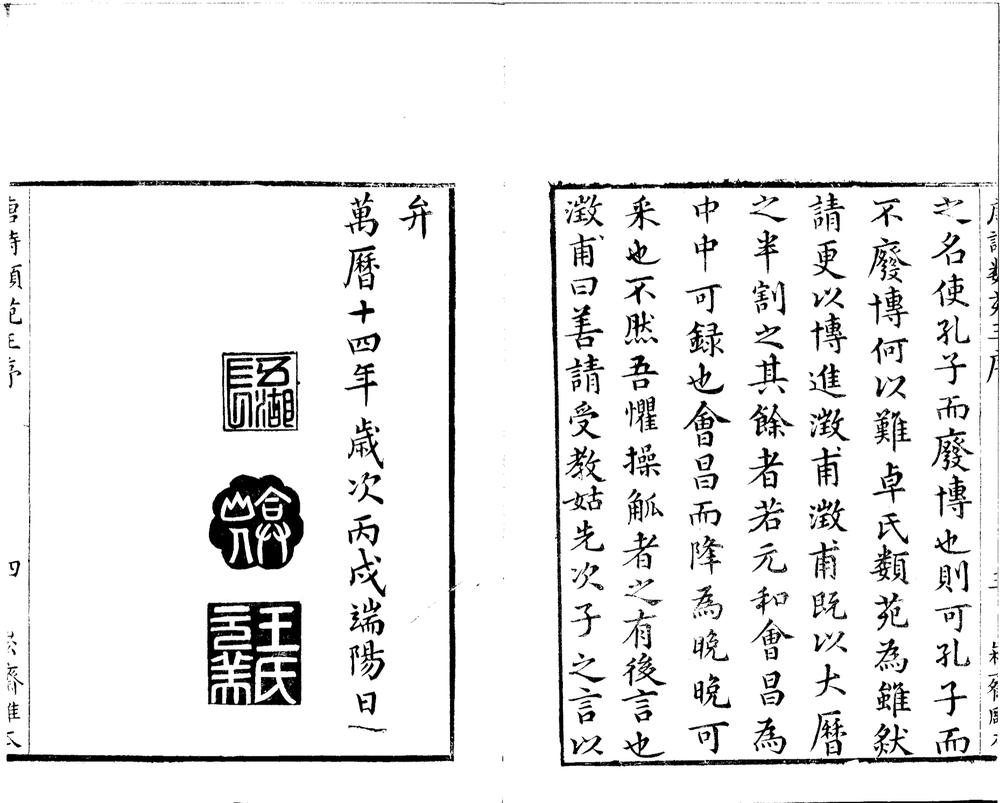 之名使孔子而廢博也則可孔子而
不廢博何以難卓氏類苑為雖然
請更以博進澂甫澂甫既以大曆
之半割之其餘者若元和會昌為
中中可録也會昌而降為晚晚可
釆也不然吾懼操觚者之有後言也
澂甫曰善請受教姑先次子之言以
弁
萬曆十四年歳次丙戌端陽日
王氏
四